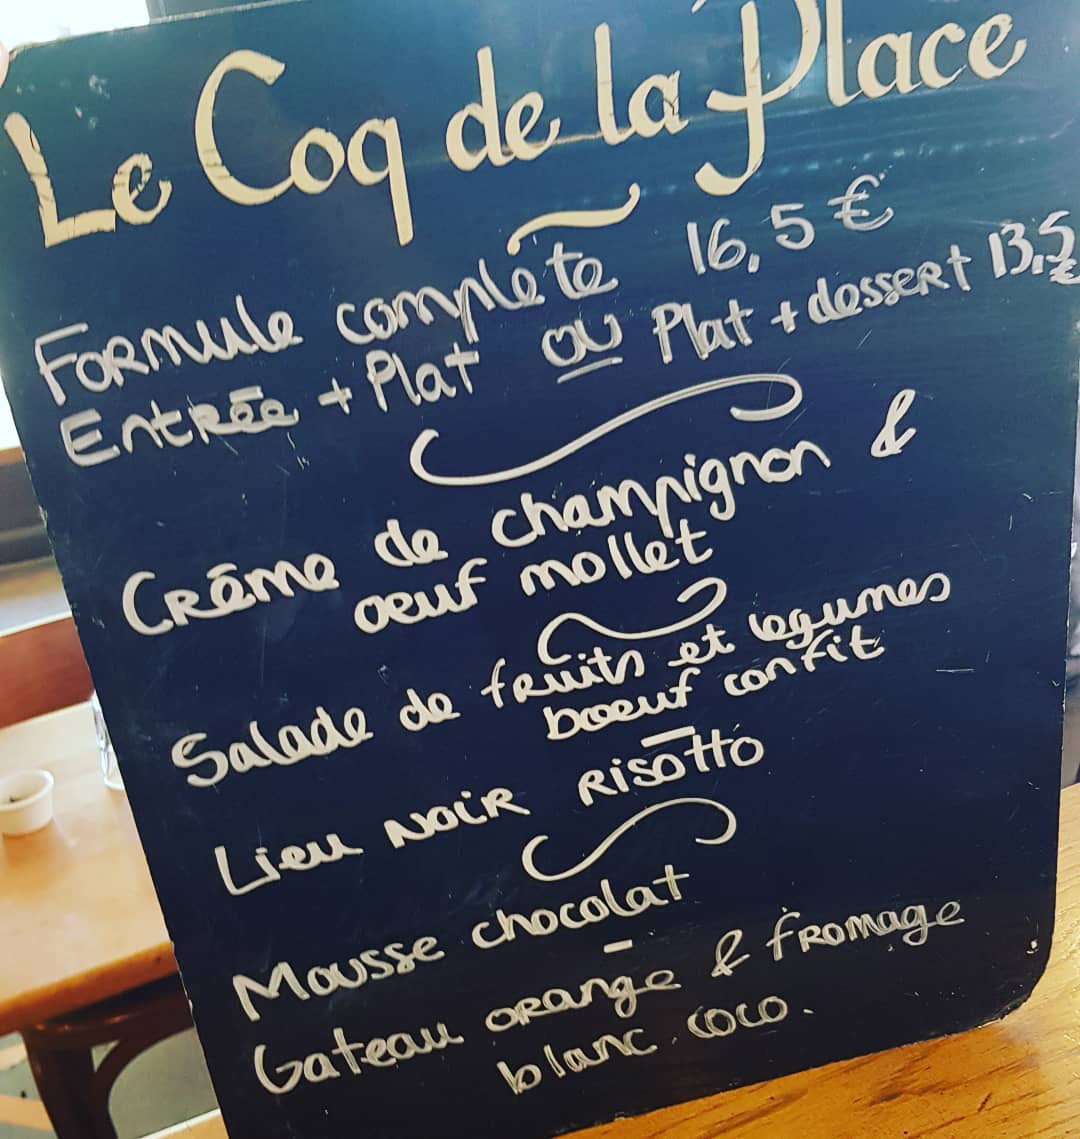 Le Coq de la Place
Formule complète 16,5 €
Entrée + Plat ou Plat + dessert 13,5 €
Crème de champignon &
oeuf mollet
Salade de fruits et legumes
boeuf confit
Lieu noir Risotto
Mousse chocolat
Gateau orange & fromage
blanc coco.